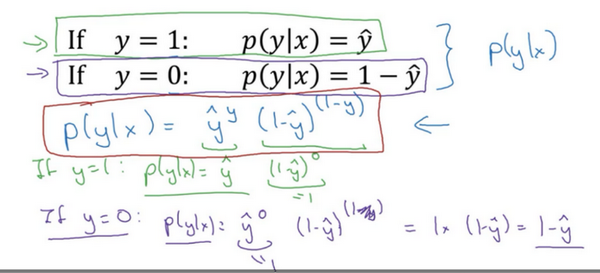 If y = 1: p(y|x) = ŷ
If y = 0: p(y|x) = 1 − ŷ
} p(y|x)
p(y|x) = ŷ^y (1-ŷ)^(1-y)
If y=1: p(y|x) = ŷ (1-ŷ)^0
=1
If y=0: p(y|x) = ŷ^0 (1-ŷ)^(1-y) = 1 × (1-ŷ) = 1-ŷ
=1